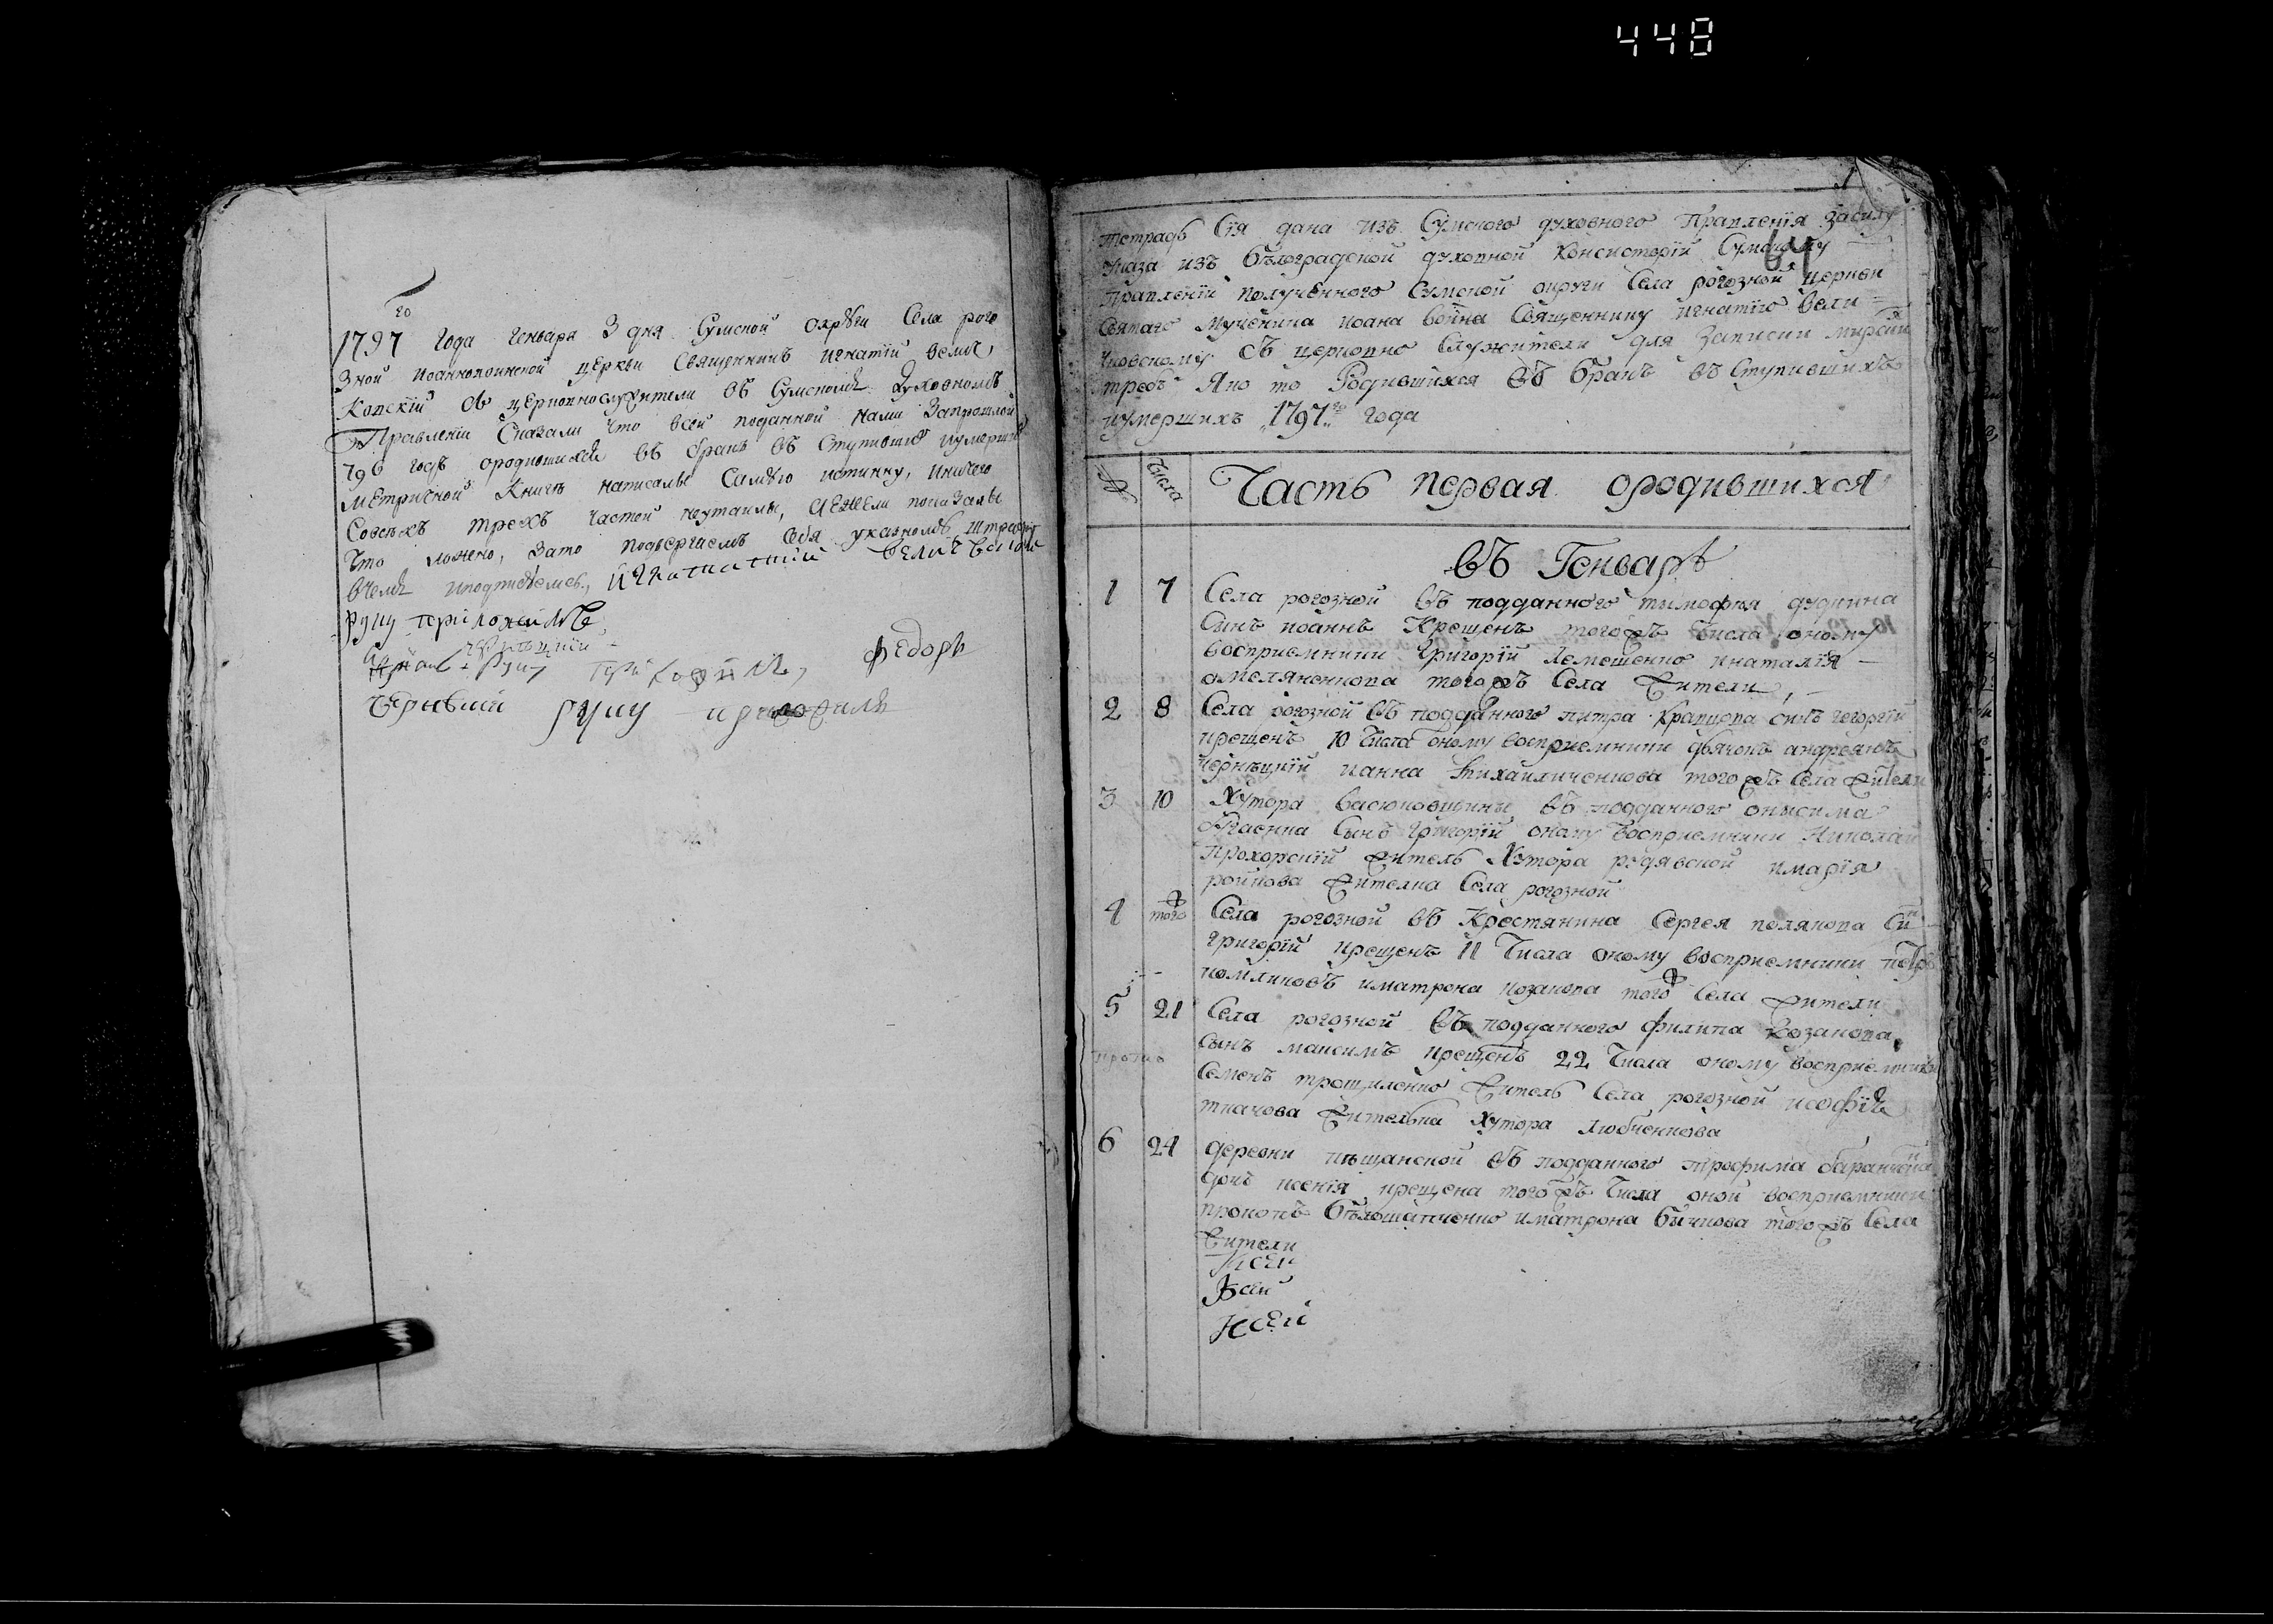 448
1797 го года генваря 3 дня Сумской округи Села рого
зной иоанновоинской церкви Священникъ игнатій велич,
Ковскій съ церковнослужители въ Сумскомъ Духовномъ
Правленіи Сказали что всей поданной нами Запрошлой
796 годъ ородившихся въ бракъ въ Ступившихъ иумершихъ
метричной Книгѣ написали Самую истинну, иничего
Совсѣхъ трехъ частей неутаили, аежели показали
Что ложно, зато подвергаемъ Себя указномъ штрафу
вчемъ иподписуемся, игнатий величковский
руку приложилъ
руку приложилъ, федоръ
руку приложилъ
1
64
тетрадь Сія дана изъ Сумского духовного Правленія Засилу
указа изъ бѣлоградской духовной Консисторіи Сумскому
Правленіи полученного Сумской округи Села рогозной церкви
Святаго мученика иоана воина Священнику игнатію вели=
чковскому съ церковно Служители для Записки мирскихъ
требъ Яко то Родившихся въ бракъ въ Ступившихъ
иумершихъ „1797„ го года
№ Числа Часть первая ородившихся
въ Генварѣ
1 7 Села рогозной въ подданного тимофея дудкина
Сынъ иоаннъ Крещенъ тогожъ Числа оному
восприемники Григорій Лемешенко инаталія
омеляненкова тогожъ Села жители,
2 8 Села рогозной въ подданного питра Кравцова снъ георгій
крещенъ 10 Числа оному восприемники дьячокъ андреянъ
чернѣцкій ианна михайличенкова тогожъ Села жители
3 10 Хутора васюковщины въ подданного онисима
Сынъ Григорій оному восприемники Николай
Прохорскій житель Хутора рудявской имарія
ройкова жителка Села рогозной
4 тогож Села рогозной въ Крестянина Сергея полякова Сн
григорій крещенъ 11 Числа оному восприемники петръ
иматрона козакова тогож Села жители
5 21 Села рогозной въ подданного филипа Козакова
Сынъ максимъ крещенъ 22 Числа оному восприемники
Семенъ трощиленко житель Села рогозной исофія
ткачова жителька Хутора Любченкова
6 24 деревни пѣщанской въ подданного трофима
дочь ксенія крещена тогожъ Числа оной восприемники
прокопъ бѣлошапченко иматрона бичкова тогожъ Села
жители